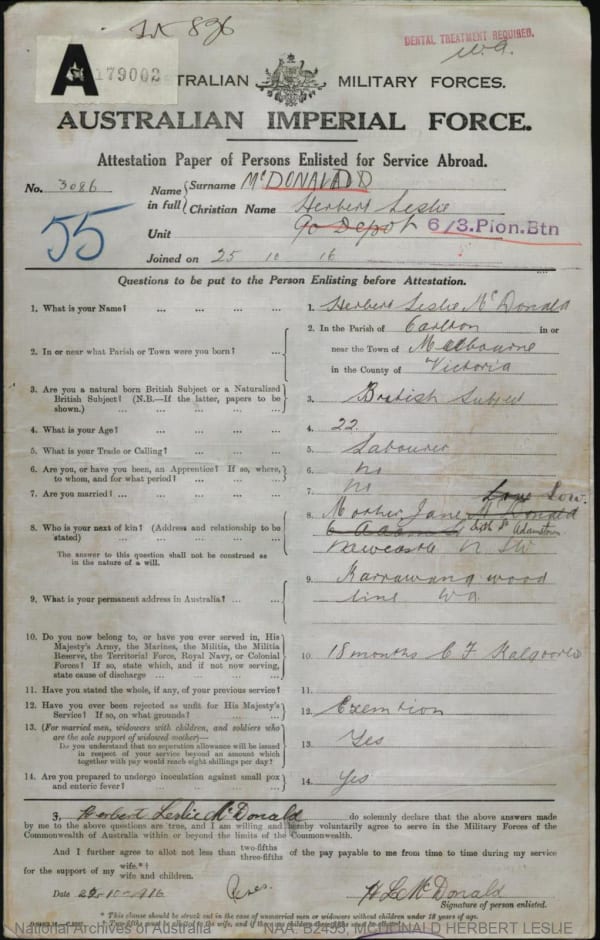 DENTAL TREATMENT REQUIRED.
W.A.
A 179002
AUSTRALIAN MILITARY FORCES.
AUSTRALIAN IMPERIAL FORCE.
Attestation Paper of Persons Enlisted for Service Abroad.
No. 3086
Name in full { Surname McDONALD
Christian Name Herbert Leslie
55
Unit 90 Depot 6/3.Pion.Btn
Joined on 25 10 16
Questions to be put to the Person Enlisting before Attestation.
1. What is your Name? ... ... ... ... 1. Herbert Leslie McDonald
2. In or near what Parish or Town were you born? ... 2. In the Parish of Carlton in or
near the Town of Melbourne
in the County of Victoria
3. Are you a natural born British Subject or a Naturalized
British Subject? (N.B.—If the latter, papers to be
shown.) ... ... ... ... 3. British Subject
4. What is your Age? ... ... ... ... 4. 22
5. What is your Trade or Calling? ... ... ... 5. Labourer
6. Are you, or have you been, an Apprentice? If so, where,
to whom, and for what period? ... ... ... 6. No
7. Are you married? ... ... ... ... 7. No
8. Who is your next of kin? (Address and relationship to be
stated) ... ... ... ... 8. Mother Jane McDonald
Adamstown
Newcastle N S W
The answer to this question shall not be construed as
in the nature of a will.
9. What is your permanent address in Australia? ... ... 9. Karrawang wood
line Wa
10. Do you now belong to, or have you ever served in, His
Majesty's Army, the Marines, the Militia, the Militia
Reserve, the Territorial Force, Royal Navy, or Colonial
Forces? If so, state which, and if not now serving,
state cause of discharge ... ... ... 10. 18 months C F Kalgoorlie
11. Have you stated the whole, if any, of your previous service? 11.
12. Have you ever been rejected as unfit for His Majesty's
Service? If so, on what grounds? ... ... 12. Exemtion
13. (For married men, widowers with children, and soldiers who
are the sole support of widowed mother)—
Do you understand that no separation allowance will be issued
in respect of your service beyond an amount which
together with pay would reach eight shillings per day? 13. Yes
14. Are you prepared to undergo inoculation against small pox
and enteric fever? ... ... ... ... 14. Yes
I, Herbert Leslie McDonald do solemnly declare that the above answers made
by me to the above questions are true, and I am willing and hereby voluntarily agree to serve in the Military Forces of the
Commonwealth of Australia within or beyond the limits of the Commonwealth.
And I further agree to allot not less than two-fifths three-fifths of the pay payable to me from time to time during my service
for the support of my wife.*†
wife and children.
Date 22-10-1916 H L McDonald
Signature of person enlisted.
* This clause should be struck out in the case of unmarried men or widowers without children under 18 years of age.
† Two-fifths must be allotted to the wife, and if there are children three-fifths must be allotted.
National Archives of Australia NAA: B2455, MCDONALD HERBERT LESLIE